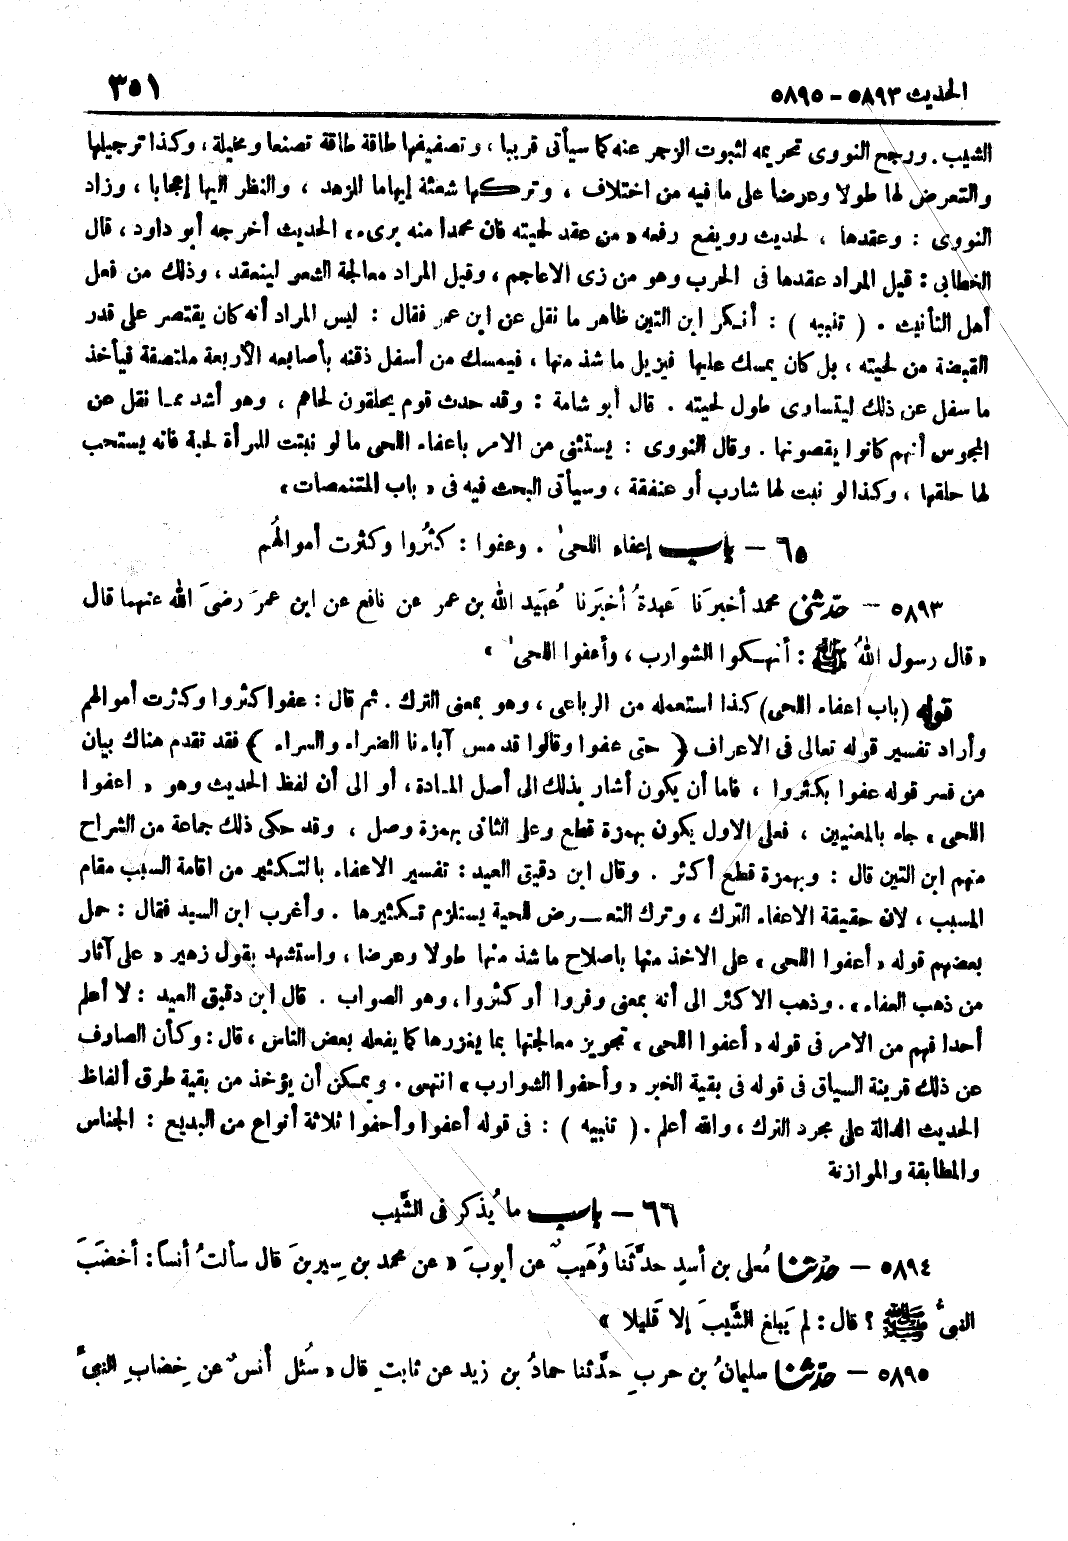 الحديث ٥٨٩٣ - ٥٨٩٥
٣٥١
الشيب . ورجح النووى تحريمه لثبوت الزجر عنه كما سيأتى قريبا ، وتصفيفها طاقة طاقة تصنعا ومخيلة ، وكذا ترجيلها
والتعرض لها طولا وعرضا على ما فيه من اختلاف ، وتركها شعثة إيهاما للزهد ، والنظر اليها إعجابا ، وزاد
النووى : وعقدها ، لحديث رويفع رفعه « من عقد لحيته فان محمدا منه برىء » الحديث أخرجه أبو داود ، قال
الخطابى : قيل المراد عقدها فى الحرب وهو من زى الاعاجم ، وقيل المراد معالجة الشعر لينعقد ، وذلك من فعل
أهل التأنيث . ( تنبيه ) : أنكر ابن التين ظاهر ما نقل عن ابن عمر فقال : ليس المراد أنه كان يقتصر على قدر
القبضة من لحيته ، بل كان يمسك عليها فيزيل ما شذ منها ، فيمسك من أسفل ذقنه بأصابعه الأربعة ملتصقة فيأخذ
ما سفل عن ذلك ليتساوى طول لحيته . قال أبو شامة : وقد حدث قوم يحلقون لحاهم ، وهو أشد مما نقل عن
المجوس أنهم كانوا يقصونها . وقال النووى : يستثنى من الامر باعفاء اللحى ما لو نبتت للمرأة لحية فانه يستحب
لها حلقها ، وكذا لو نبت لها شارب أو عنفقة ، وسيأتى البحث فيه فى « باب المتنمصات »
٦٥ - باب إعفاء اللحىٰ . وعفوا : كثُروا وكثرت أموالهُم
٥٨٩٣ - حدّثنى محمد أخبرَنا عَبدةُ أخبَرنا عُبَيد الله بن عمر عن نافع عن ابن عمرَ رضىَ الله عنهما قال
« قال رسول اللهُ ﷺ : أنهكوا الشوارب ، وأعفوا اللحىٰ »
قوله (باب اعفاء اللحى) كذا استعمله من الرباعى ، وهو بمعنى الترك . ثم قال : عفوا كثروا وكثرت أموالهم
وأراد تفسير قوله تعالى فى الاعراف ( حتى عفوا وقالوا قد مس آباءنا الضراء والسراء ) فقد تقدم هناك بيان
من فسر قوله عفوا بكثروا ، فاما أن يكون أشار بذلك الى أصل المادة ، أو الى أن لفظ الحديث وهو « اعفوا
اللحى » جاء بالمعنيين ، فعلى الاول يكون بهمزة قطع وعلى الثانى بهمزة وصل ، وقد حكى ذلك جماعة من الشراح
منهم ابن التين قال : وبهمزة قطع أكثر . وقال ابن دقيق العيد : تفسير الاعفاء بالتكثير من اقامة السبب مقام
المسبب ، لان حقيقة الاعفاء الترك ، وترك التعرض للحية يستلزم تكثيرها . وأغرب ابن السيد فقال : حمل
بعضهم قوله « أعفوا اللحى » على الاخذ منها باصلاح ما شذ منها طولا وعرضا ، واستشهد بقول زهير « على آثار
من ذهب العفاء » . وذهب الاكثر الى أنه بمعنى وفروا أو كثروا ، وهو الصواب . قال ابن دقيق العيد : لا أعلم
أحدا فهم من الامر فى قوله « أعفوا اللحى » تجويز معالجتها بما يغزرها كما يفعله بعض الناس ، قال : وكأن الصارف
عن ذلك قرينة السياق فى قوله فى بقية الخبر « وأحفوا الشوارب » انتهى . ويمكن أن يؤخذ من بقية طرق ألفاظ
الحديث الدالة على مجرد الترك ، والله أعلم . ( تنبيه ) : فى قوله أعفوا وأحفوا ثلاثة أنواع من البديع : الجناس
والمطابقة والموازنة
٦٦ - باب ما يُذكر فى الشَّيب
٥٨٩٤ - حدّثنا مُعلى بن أسدٍ حدَّثَنا وُهَيبٌ عن أيوبَ « عن محمد بن سِيرينَ قال سألتُ أنساً : أخضَبَ
النبىُّ ﷺ ؟ قال : لم يَبلغ الشَّيبَ إلا قَليلا »
٥٨٩٥ - حدّثنا سليمانُ بن حربٍ حدَّثنا حمادُ بن زيد عن ثابتٍ قال « سُئل أنسٌ عن خِضابِ النبىِّ